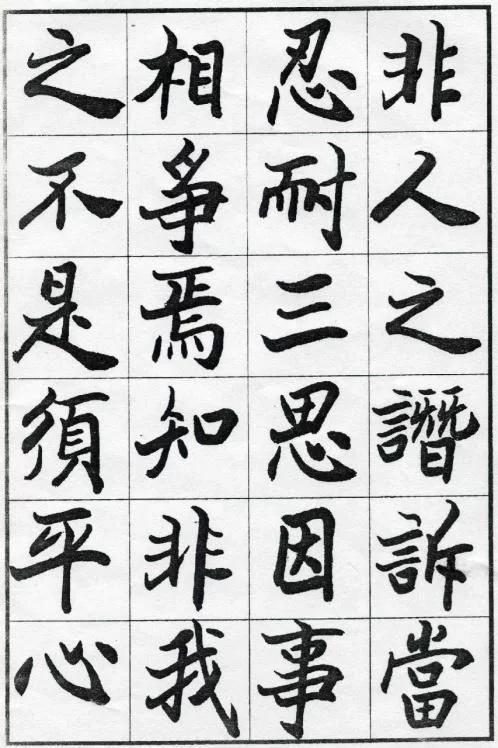 非人之譖訴當
忍耐三思因事
相爭焉知非我
之不是須平心